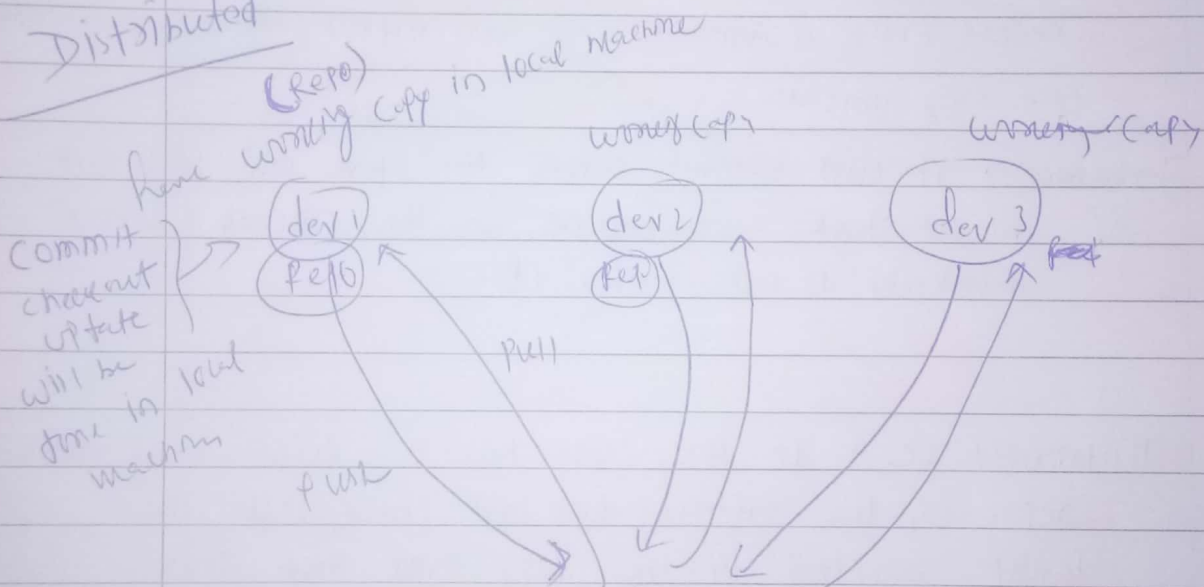 Distributed
(Repo)
have working copy in local machine
working copy
working copy
dev 1
Repo
dev 2
Rep
dev 3
commit
checkout
uptate
will be
done in local
machine
pull
push